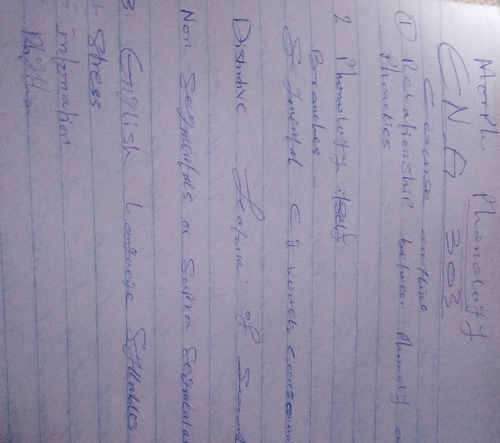 Morph Phonology
ENG 303
Course outline
① Relationship between Phonoly
Phonetics
2 Phonology itself
Branches
Segmental E.g vowels, consonan
Distinctive feature: of
Non Segmentals or Supra Segmental
3 English Language Syllables
Stress
intonation
Rhythm